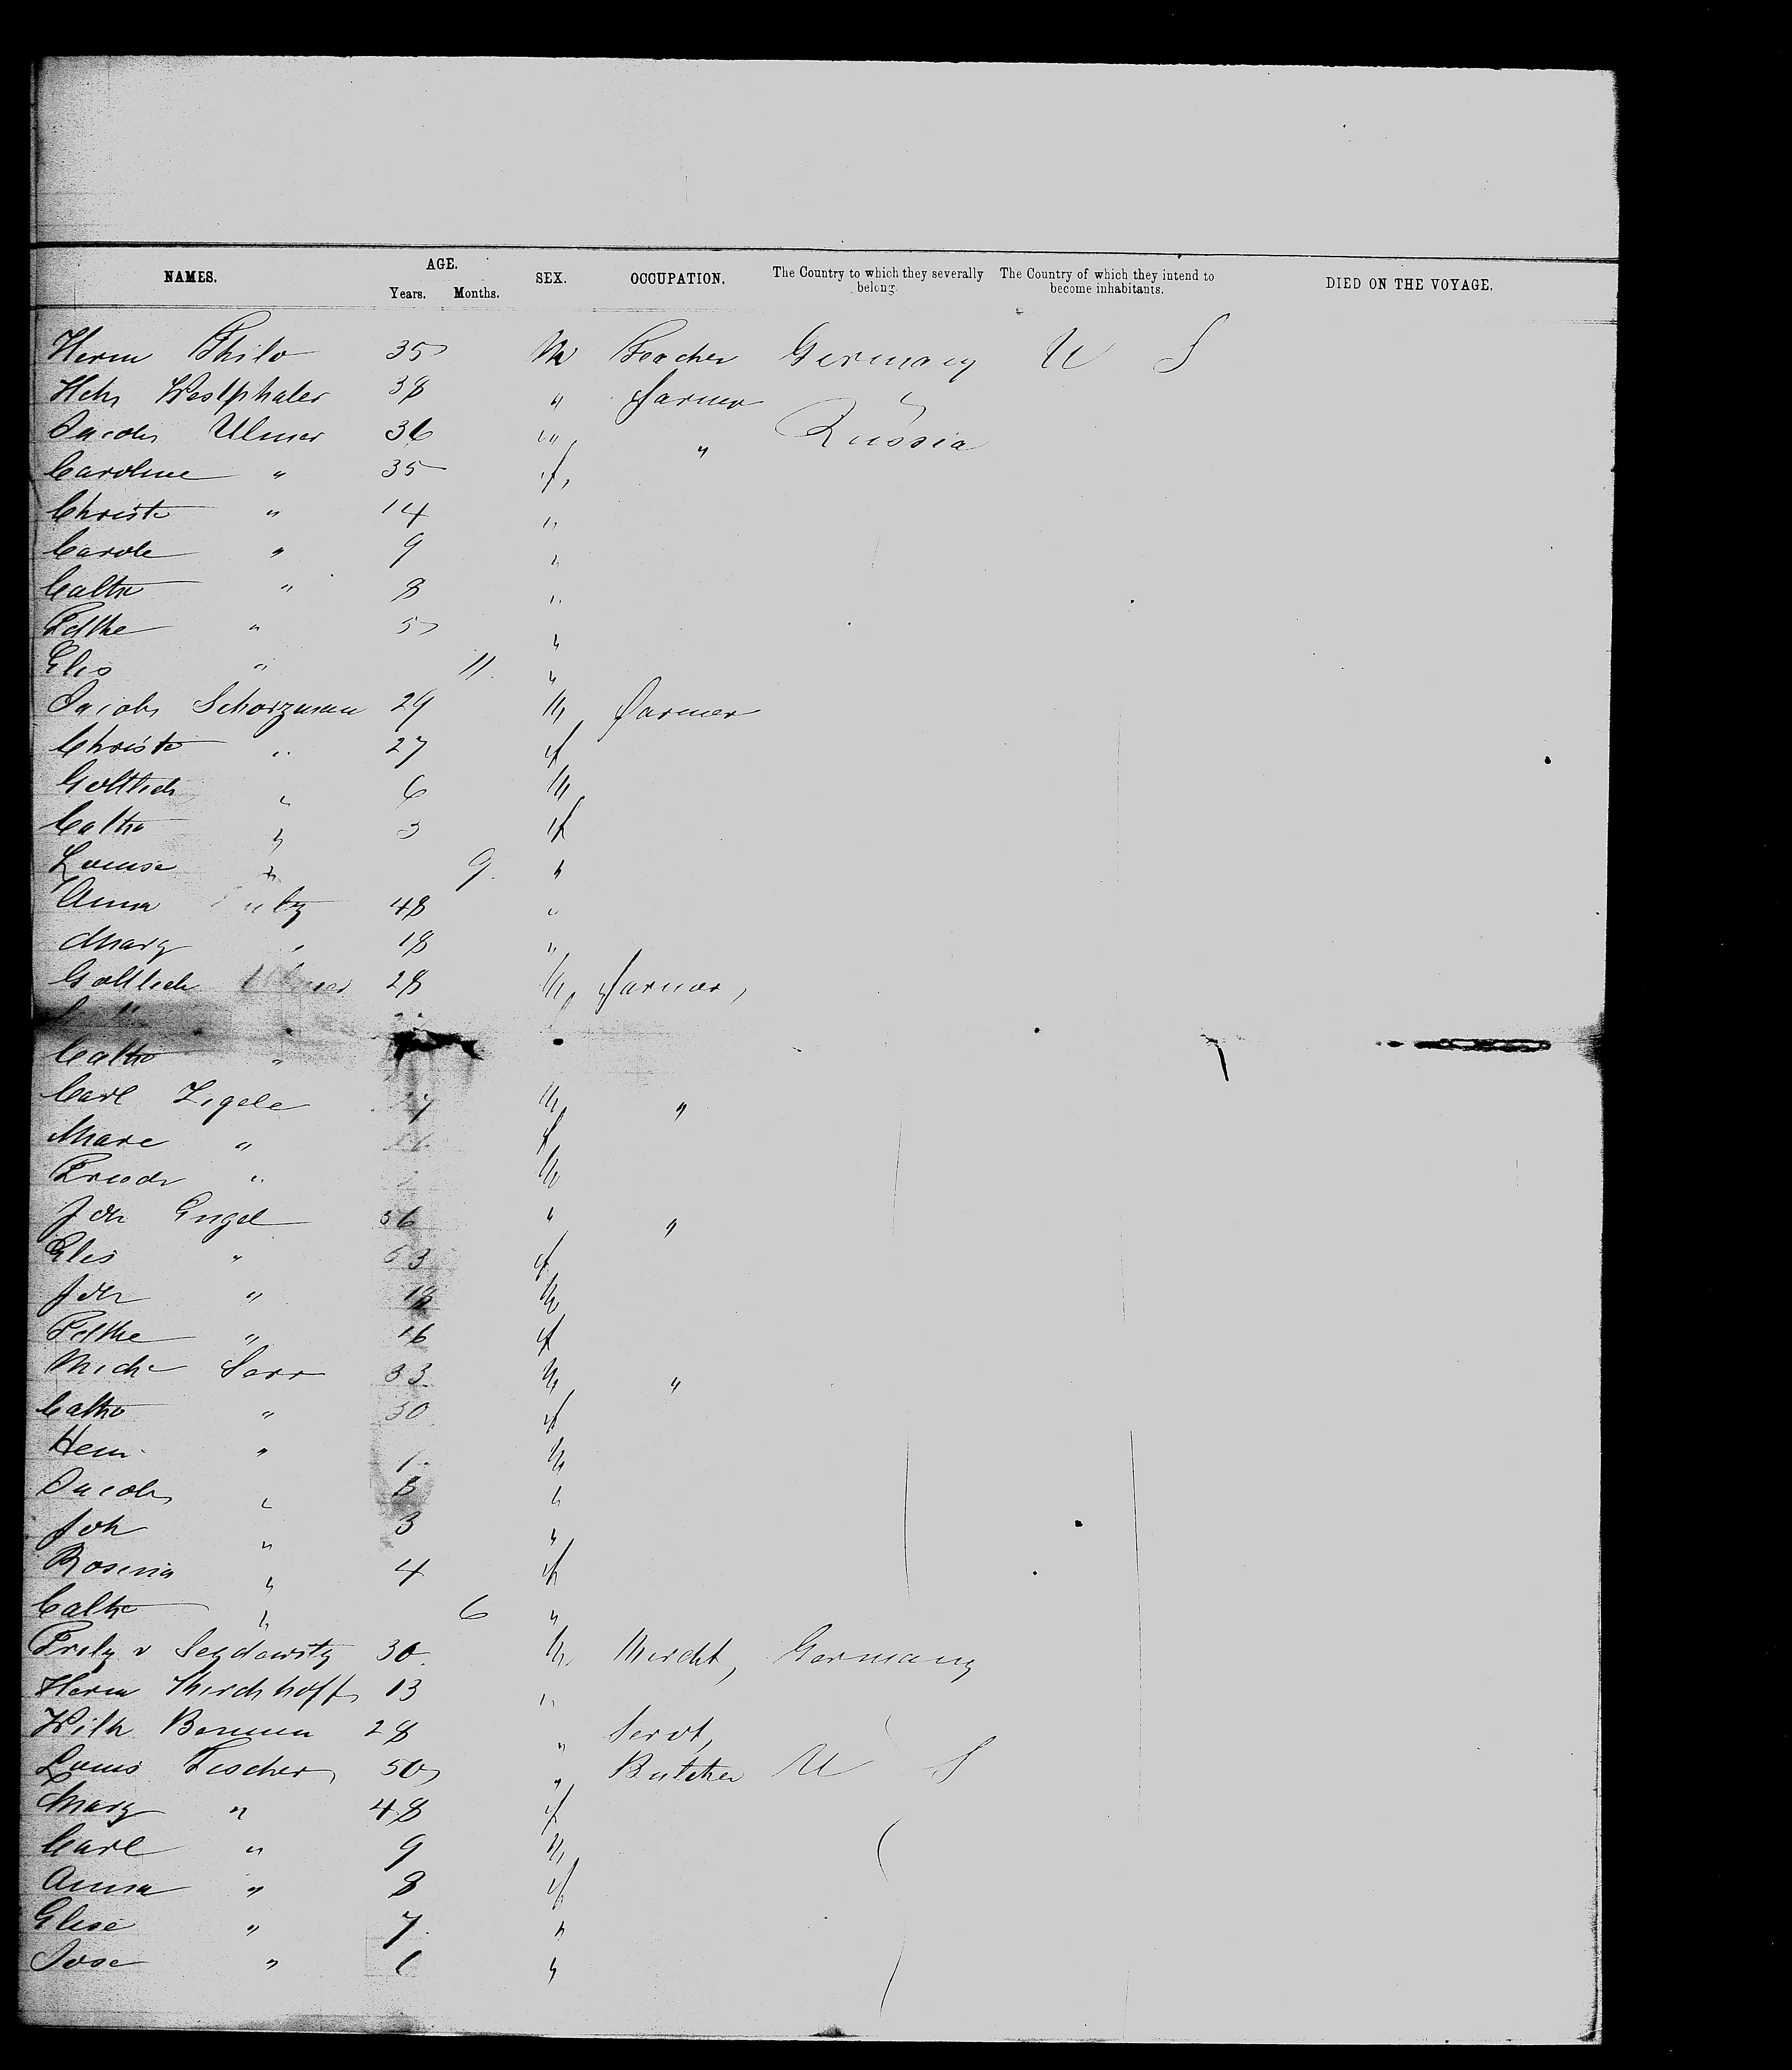 NAMES. AGE. SEX. OCCUPATION. The Country to which they severally belong. The Country of which they intend to become inhabitants. DIED ON THE VOYAGE.
Years. Months.
Herm Philo 35 M Teacher Germany U S
Hch Westphaler 38 " farmer "
Jacob Ulmer 36 " " Russia
Caroline " 35 f
Christe " 14 "
Carole " 9 "
Cathe " 8 "
Fdke " 5 "
Elis " 11 "
Jacob Schorzman 29 M farmer
Christe " 27 f
Gottlieb " 6 M
Cathe " 3 f
Louise " 9 "
Anna 48 "
Marg " 18 "
Gottlieb 28 M farmer
Cathe "
Carl Zigele M "
Mare " f
Friedr " M
Joh Engel 56 " "
Elis " 53 f
Joh " 18 M
Fdke " 16 f
Mich Sarr 33 M "
Cathe " 30 f
Hein " M
Jacob " "
Joh " 3 "
Rosina " 4 f
Cathe " 6 "
Fritz v Seydewitz 30 M Mercht, Germany
Herm Kirchhoff 13 "
Wilh 28 " Servt,
Louis Fischer 50 " Butcher U S
Marg " 48 f
Carl " 9 M
Anna " 8 f
Elise " 7 "
Jose " "